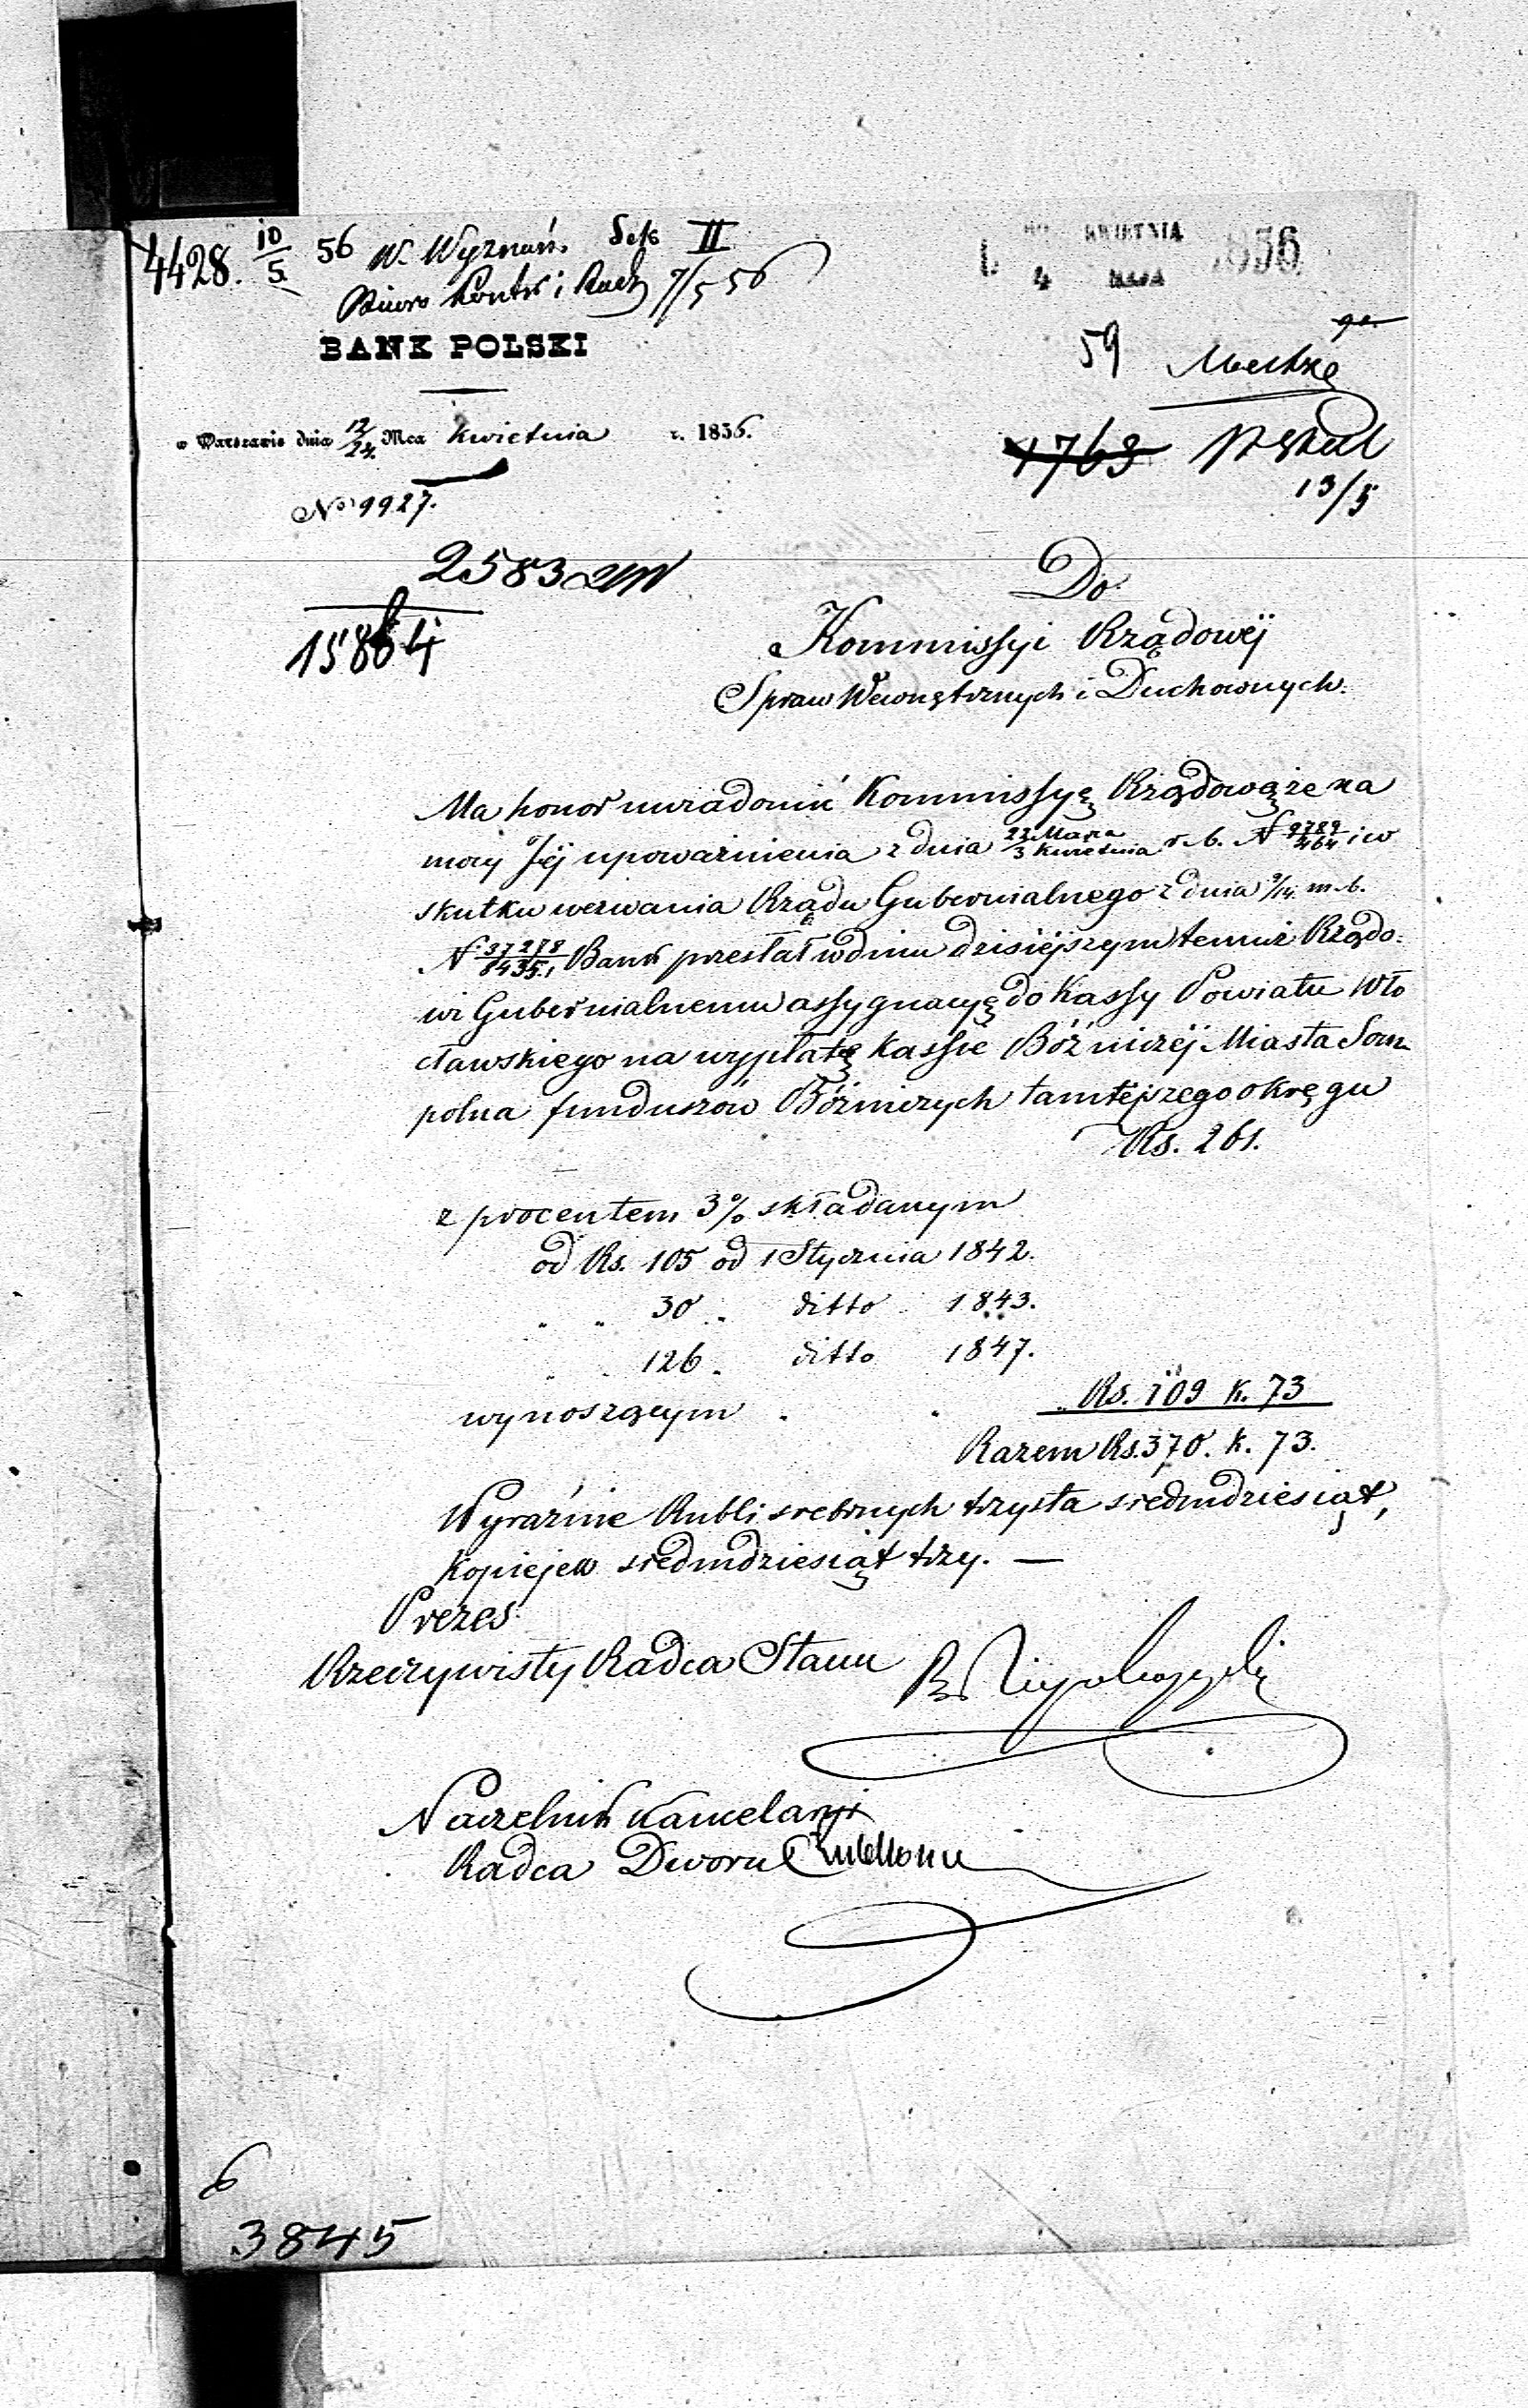 4428. 10/5 56 W. Wyznań. Sek II
Biuro Kontr i Rach 7/5 56
KWIETNIA
4 MAJA 1856
BANK POLSKI
59
w Warszawie dnia 12/24 Mca Kwietnia r. 1856.
1763
13/5
No 9927.
2583
15864
Do
Kommissyi Rządowéj
Spraw Wewnętrznych i Duchownych.
Ma honor uwiadomić Kommissyę Rządową że na
mocy Jéj upoważnienia z dnia 22 Marca/3 Kwietnia r. b. N 9789/464 i w
skutku wezwania Rządu Gubernialnego z dnia 2/14 m. b.
N 37278/84351 Bank przesłał w dniu dzisiéjszym temuż Rządo-
wi Gubernialnemu assygnacyę do Kassy Powiatu Wło
cławskiego na wypłatę Kassie Bóźniczéj Miasta Som
polna funduszów Bóźniczych tamtéjszego okręgu
Rs. 261.
z procentem 3% składanym
od Rs. 105 od 1 Stycznia 1842.
" " 30 " ditto 1843.
" " 126 " ditto 1847.
wynoszącym " " " Rs. 109 k. 73
Razem Rs. 370. k. 73.
Wyraźnie Rubli srebrnych trzysta siedmdziesiąt,
Kopiejek siedmdziesiąt trzy. —
Prezes
Rzeczywisty Radca Stanu
Naczelnik Kancelaryi
Radca Dworu
6
3845